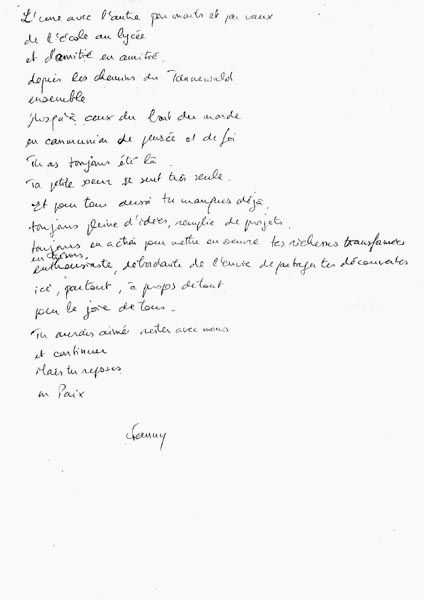 L'une avec l'autre par monts et par vaux
de l'école au lycée
et d'amitié en amitié,
depuis les chemins du Tannewald
ensemble
jusqu'à ceux du bout du monde
en communion de pensée et de foi
Tu as toujours été là.
Ta petite soeur se sent très seule.
Et pour tous aussi tu manques déjà,
toujours pleine d'idées, remplie de projets.
toujours en action pour mettre en oeuvre tes richesses transformées
enthousiaste, débordante de l'envie de partager tes découvertes
ici, partout, à propos de tout.
pour la joie de tous.
Tu aurais aimé rester avec nous
et continuer
Mais tu reposes
en Paix
Fanny